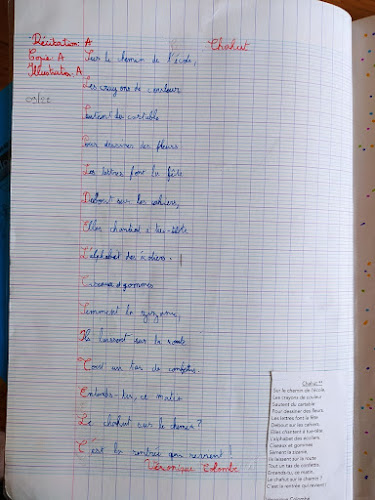 Récitation: A
Chahut
Copie: A
Sur le chemin de l'école,
Illustration: A
Les crayons de couleur
Sautent du cartable
Pour dessiner des fleurs
Les lettres font la fête
Debout sur les cahiers,
Elles chantent à tue-tête
L'alphabet des écoliers.
Ciseaux et gommes
Sèment la zizanie,
Ils laissent sur la route
Tout un tas de confettis.
Entends-tu, ce matin
Le chahut sur le chemin ?
C'est la rentrée qui revient !
Véronique Colombe
Chahut !!!
Sur le chemin de l'école,
Les crayons de couleur
Sautent du cartable
Pour dessiner des fleurs.
Les lettres font la fête
Debout sur les cahiers,
Elles chantent à tue-tête
L'alphabet des écoliers.
Ciseaux et gommes
Sèment la zizanie,
Ils laissent sur la route
Tout un tas de confettis.
Entends-tu, ce matin,
Le chahut sur le chemin ?
C'est la rentrée qui revient !
Véronique Colombe